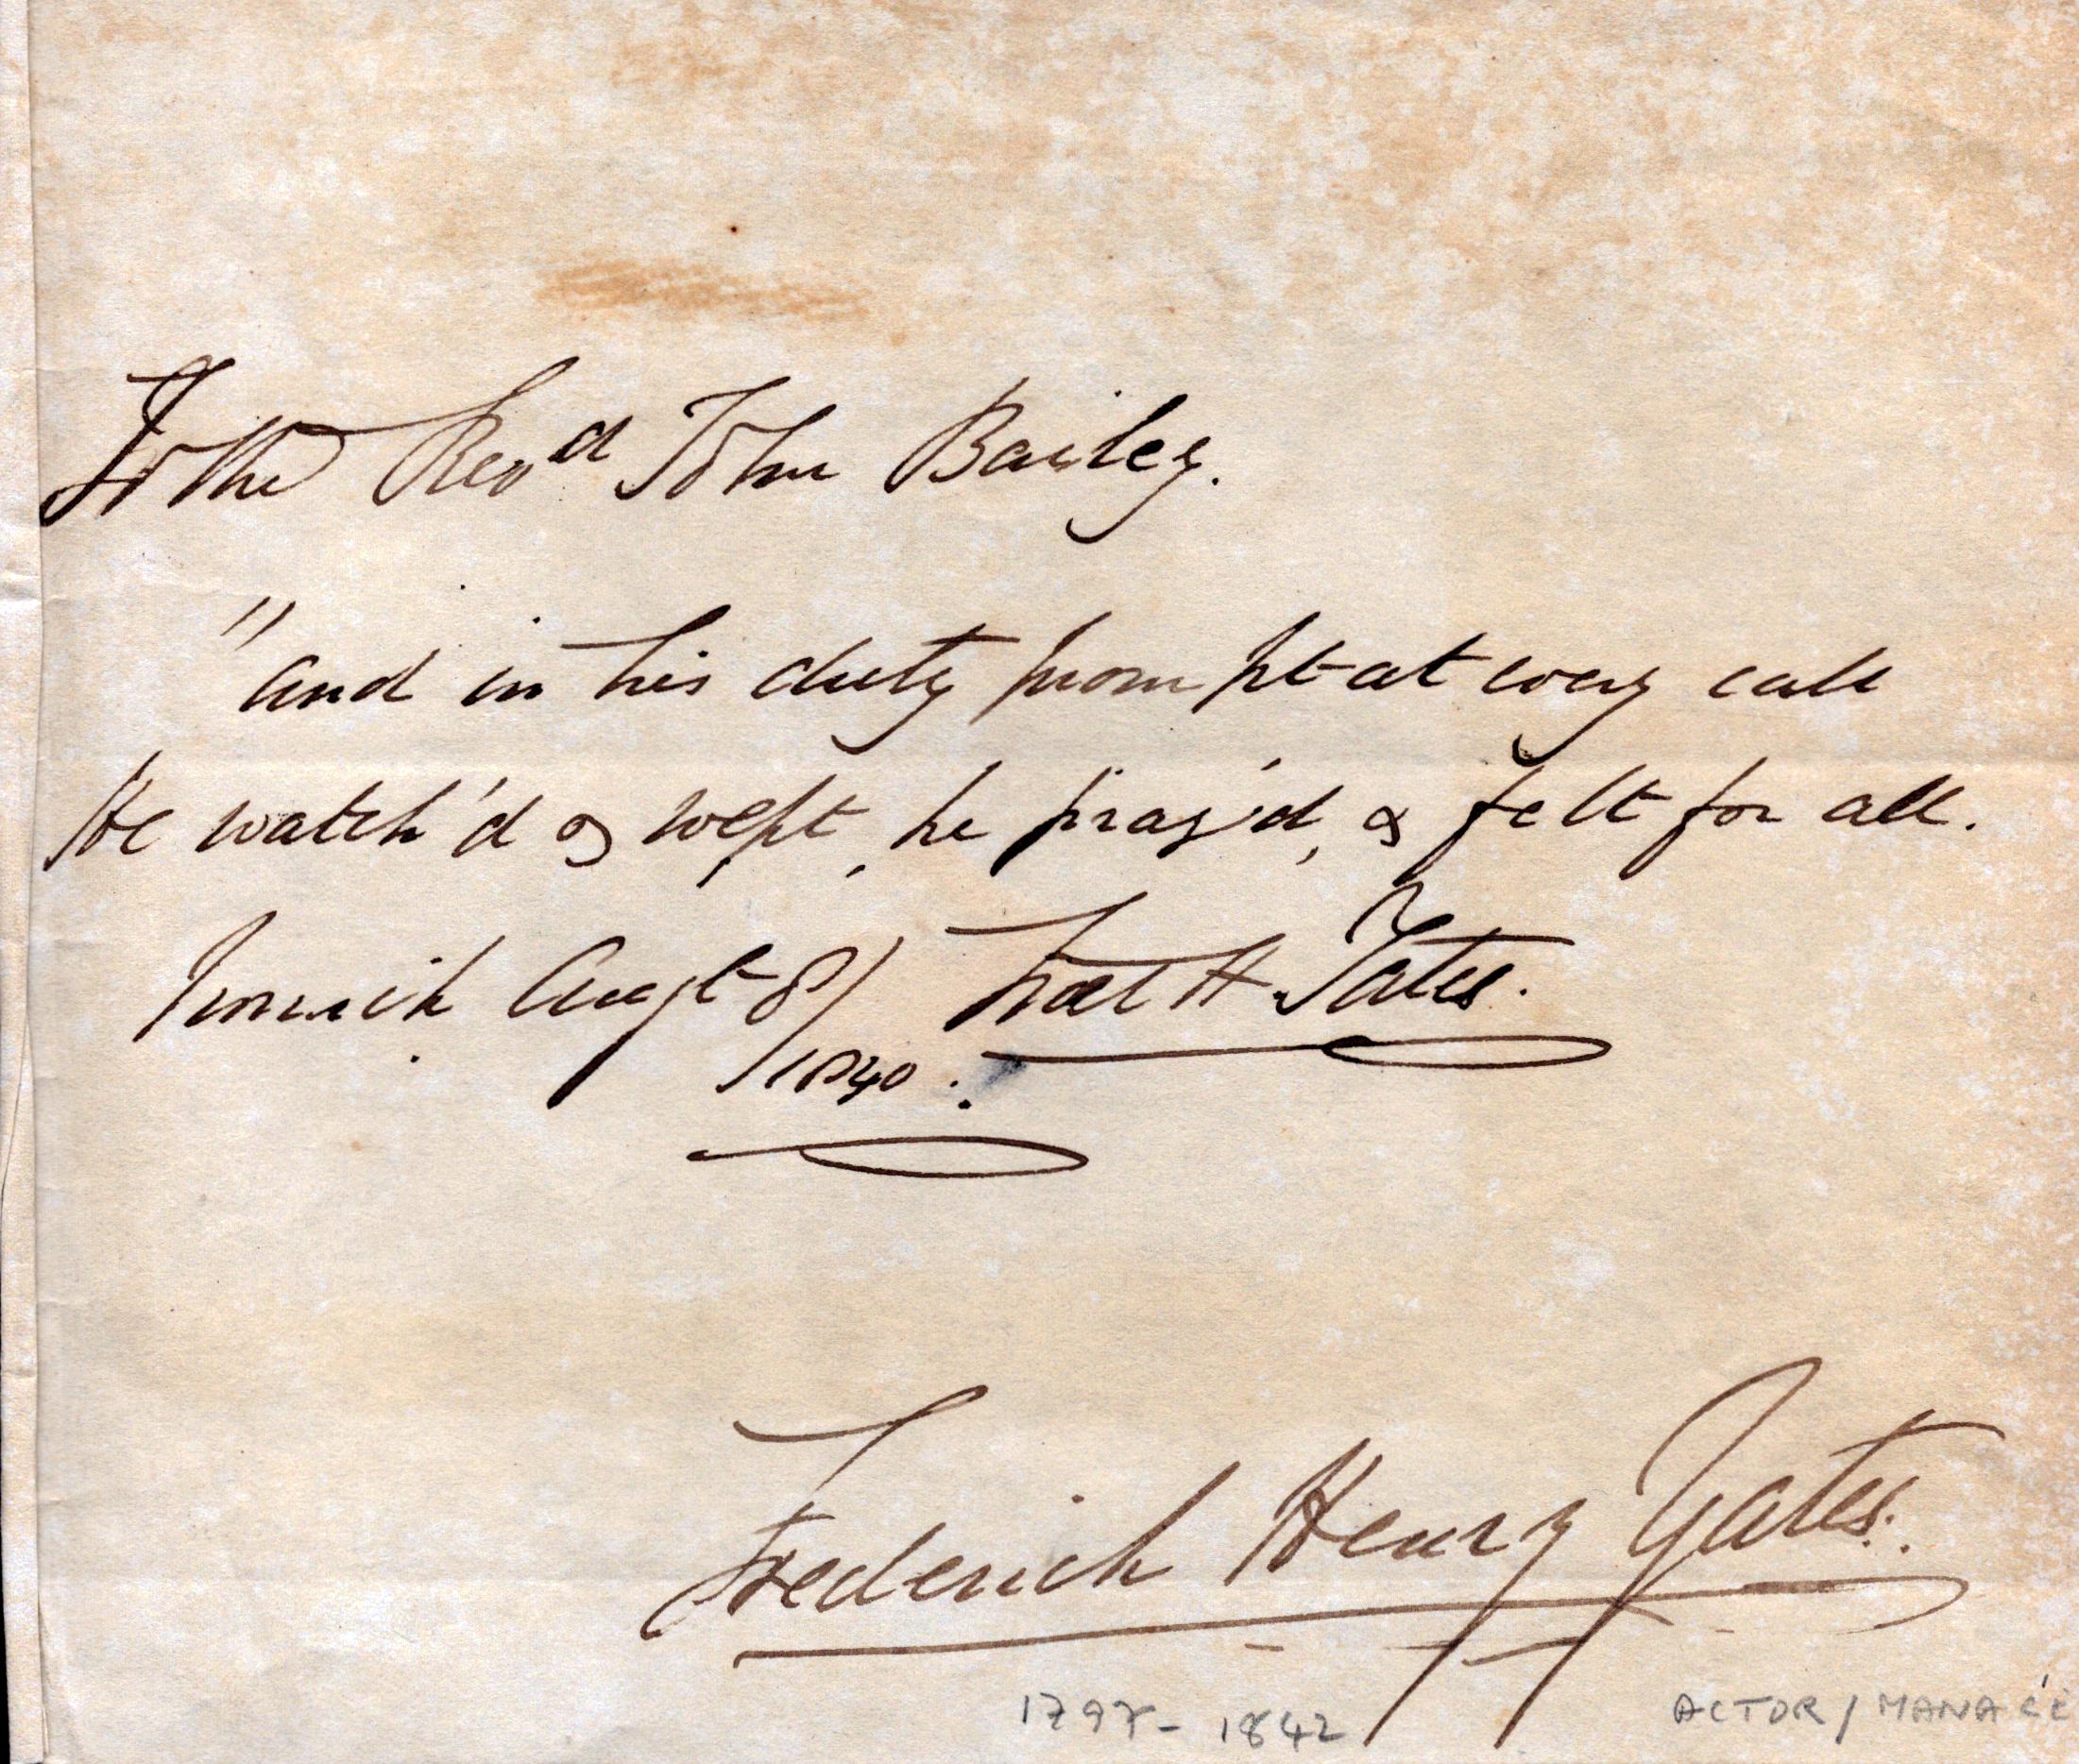 To the Revd John Bailey.
"and in his duty prompt at every call
He watch'd & wept, he pray'd, & felt for all.
Augt 8/ Fred H Yates.
1840.
Frederick Henry Yates.
1797 - 1842 ACTOR / MANAGE